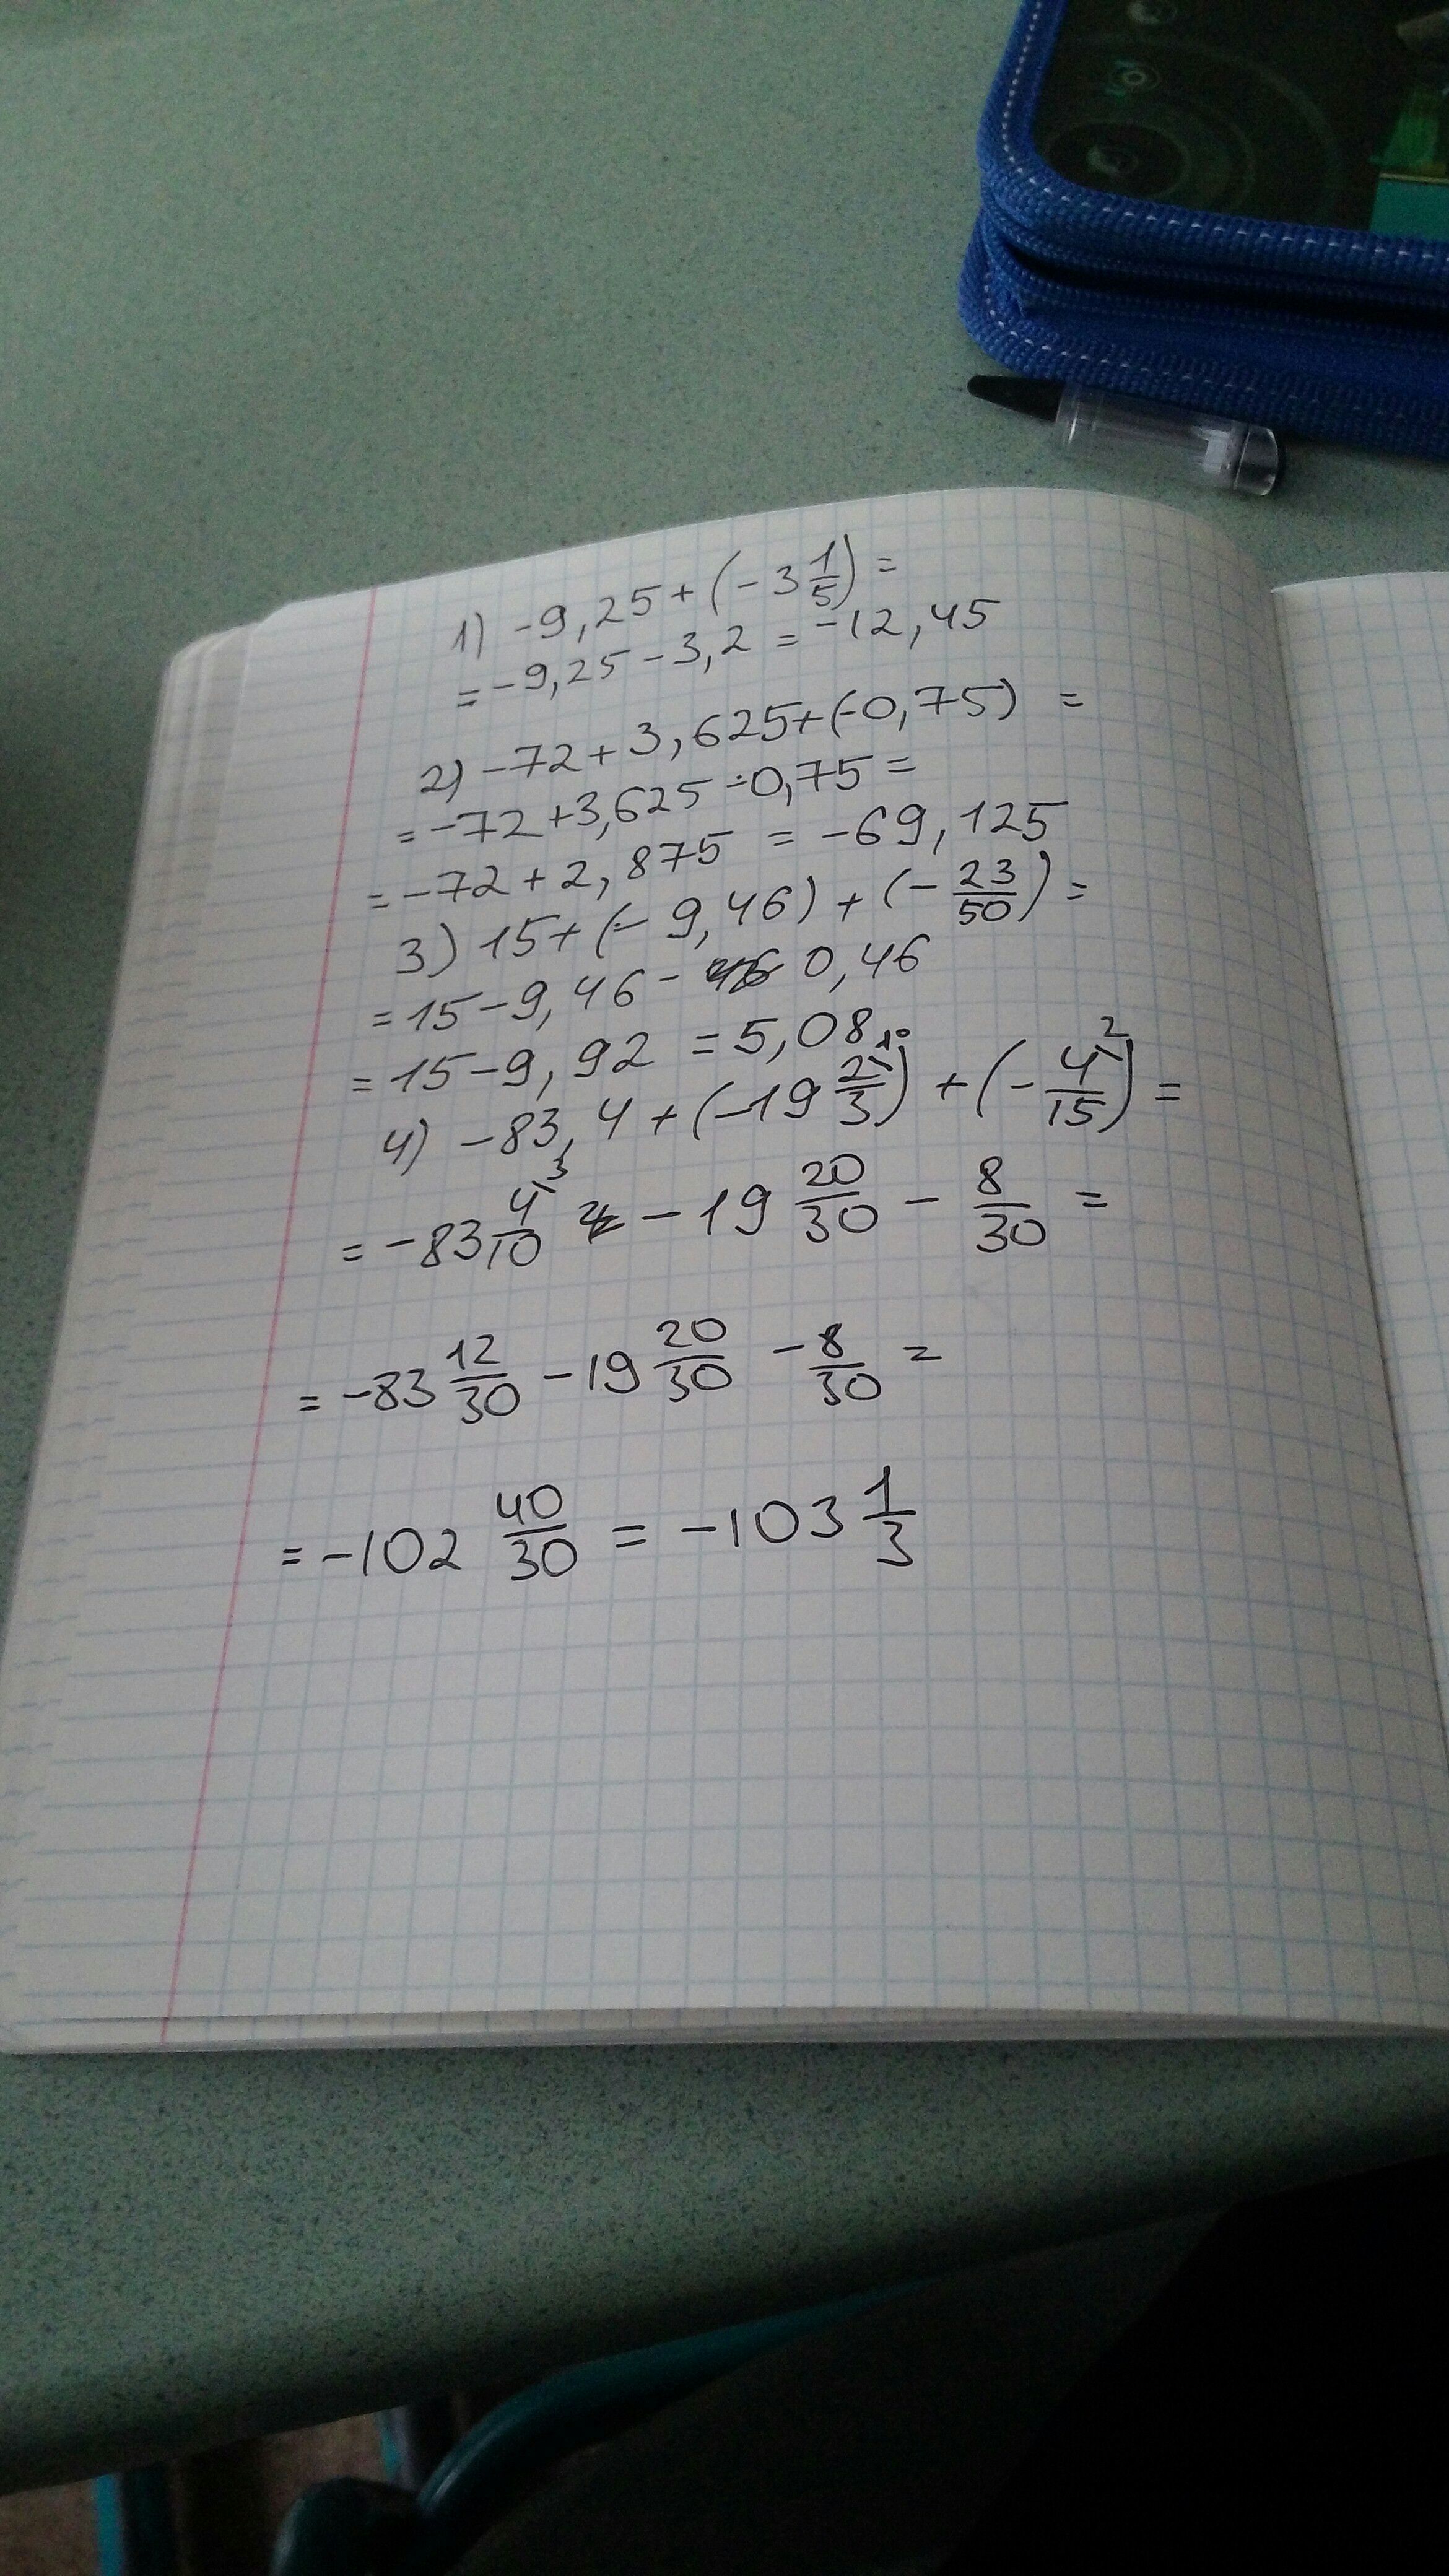 1) -9,25+(-3 1/5)=
=-9,25-3,2=-12,45
2) -72+3,625+(-0,75) =
=-72+3,625-0,75=
=-72+2,875 = -69,125
3) 15+(-9,46)+(-23/50)=
=15-9,46- 0,46
=15-9,92 =5,08
4) -83,4+(-19 2/3 10)+(-4/15 2)=
=-83 4/10 3 -19 20/30 - 8/30 =
=-83 12/30 -19 20/30 - 8/30 =
=-102 40/30 = -103 1/3